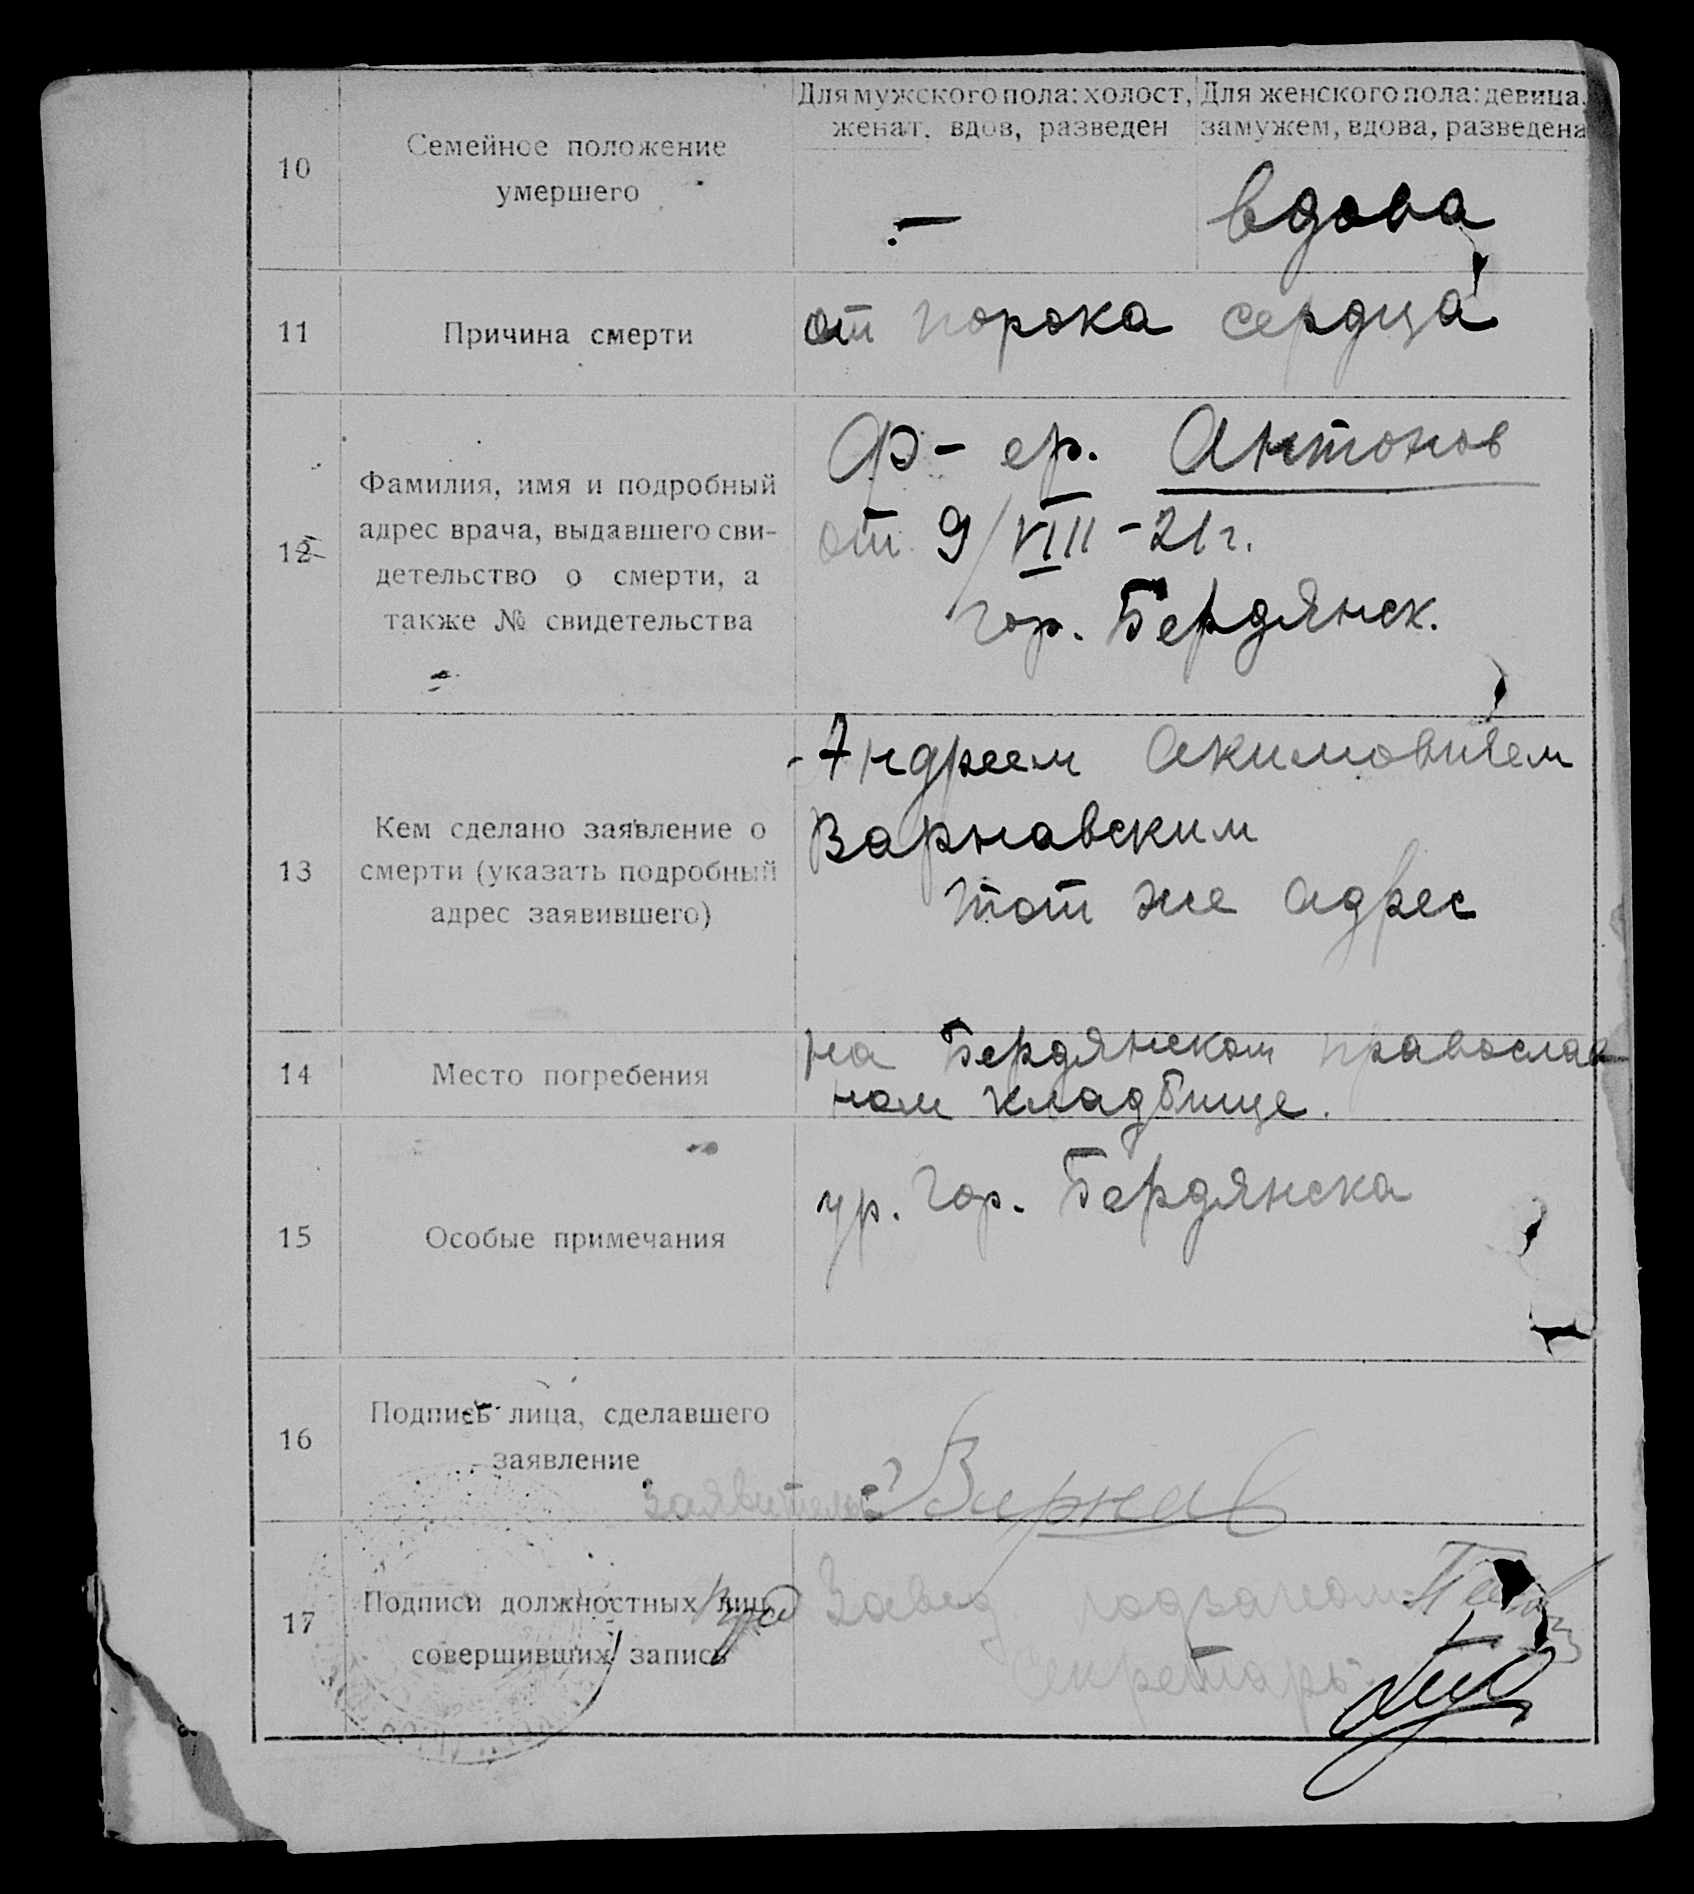 Для мужского пола: холост, женат, вдов, разведен
Для женского пола: девица, замужем, вдова, разведена
10
Семейное положение
умершего
–
вдова
11
Причина смерти
от порока сердца
12
Фамилия, имя и подробный
адрес врача, выдавшего сви-
детельство о смерти, а
также № свидетельства
Ф-ер. Антонов
от 9/VIII-21г.
гор. Бердянск.
13
Кем сделано заявление о
смерти (указать подробный
адрес заявившего)
Андреем Акимовичем
Варнавским
тот же адрес
14
Место погребения
на Бердянском православ
ном кладбище.
15
Особые примечания
ур. гор. Бердянска
16
Подпись лица, сделавшего
заявление
Заявитель Варнав
17
Подписи должностных лиц,
совершивших запись
Завед подзагсом
Секретарь